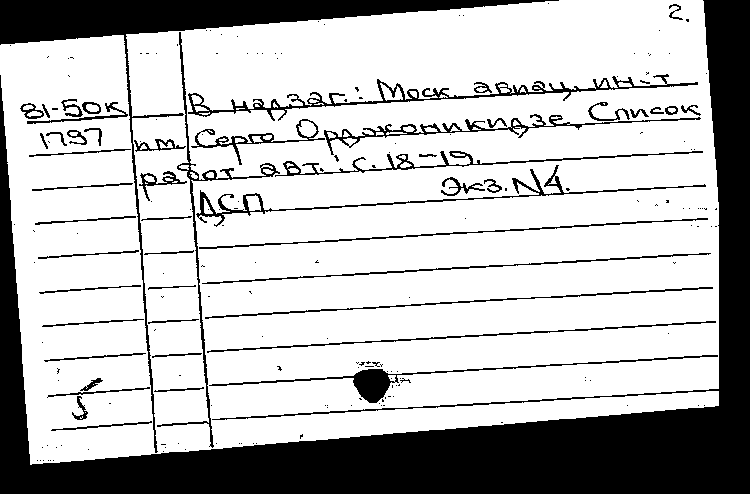 2.
81-50К
1797
В надзаг.: Моск. авиац. ин-т
им. Серго Орджоникидзе. Список
работ авт.: с. 18-19.
ДСП Экз. N4.
5